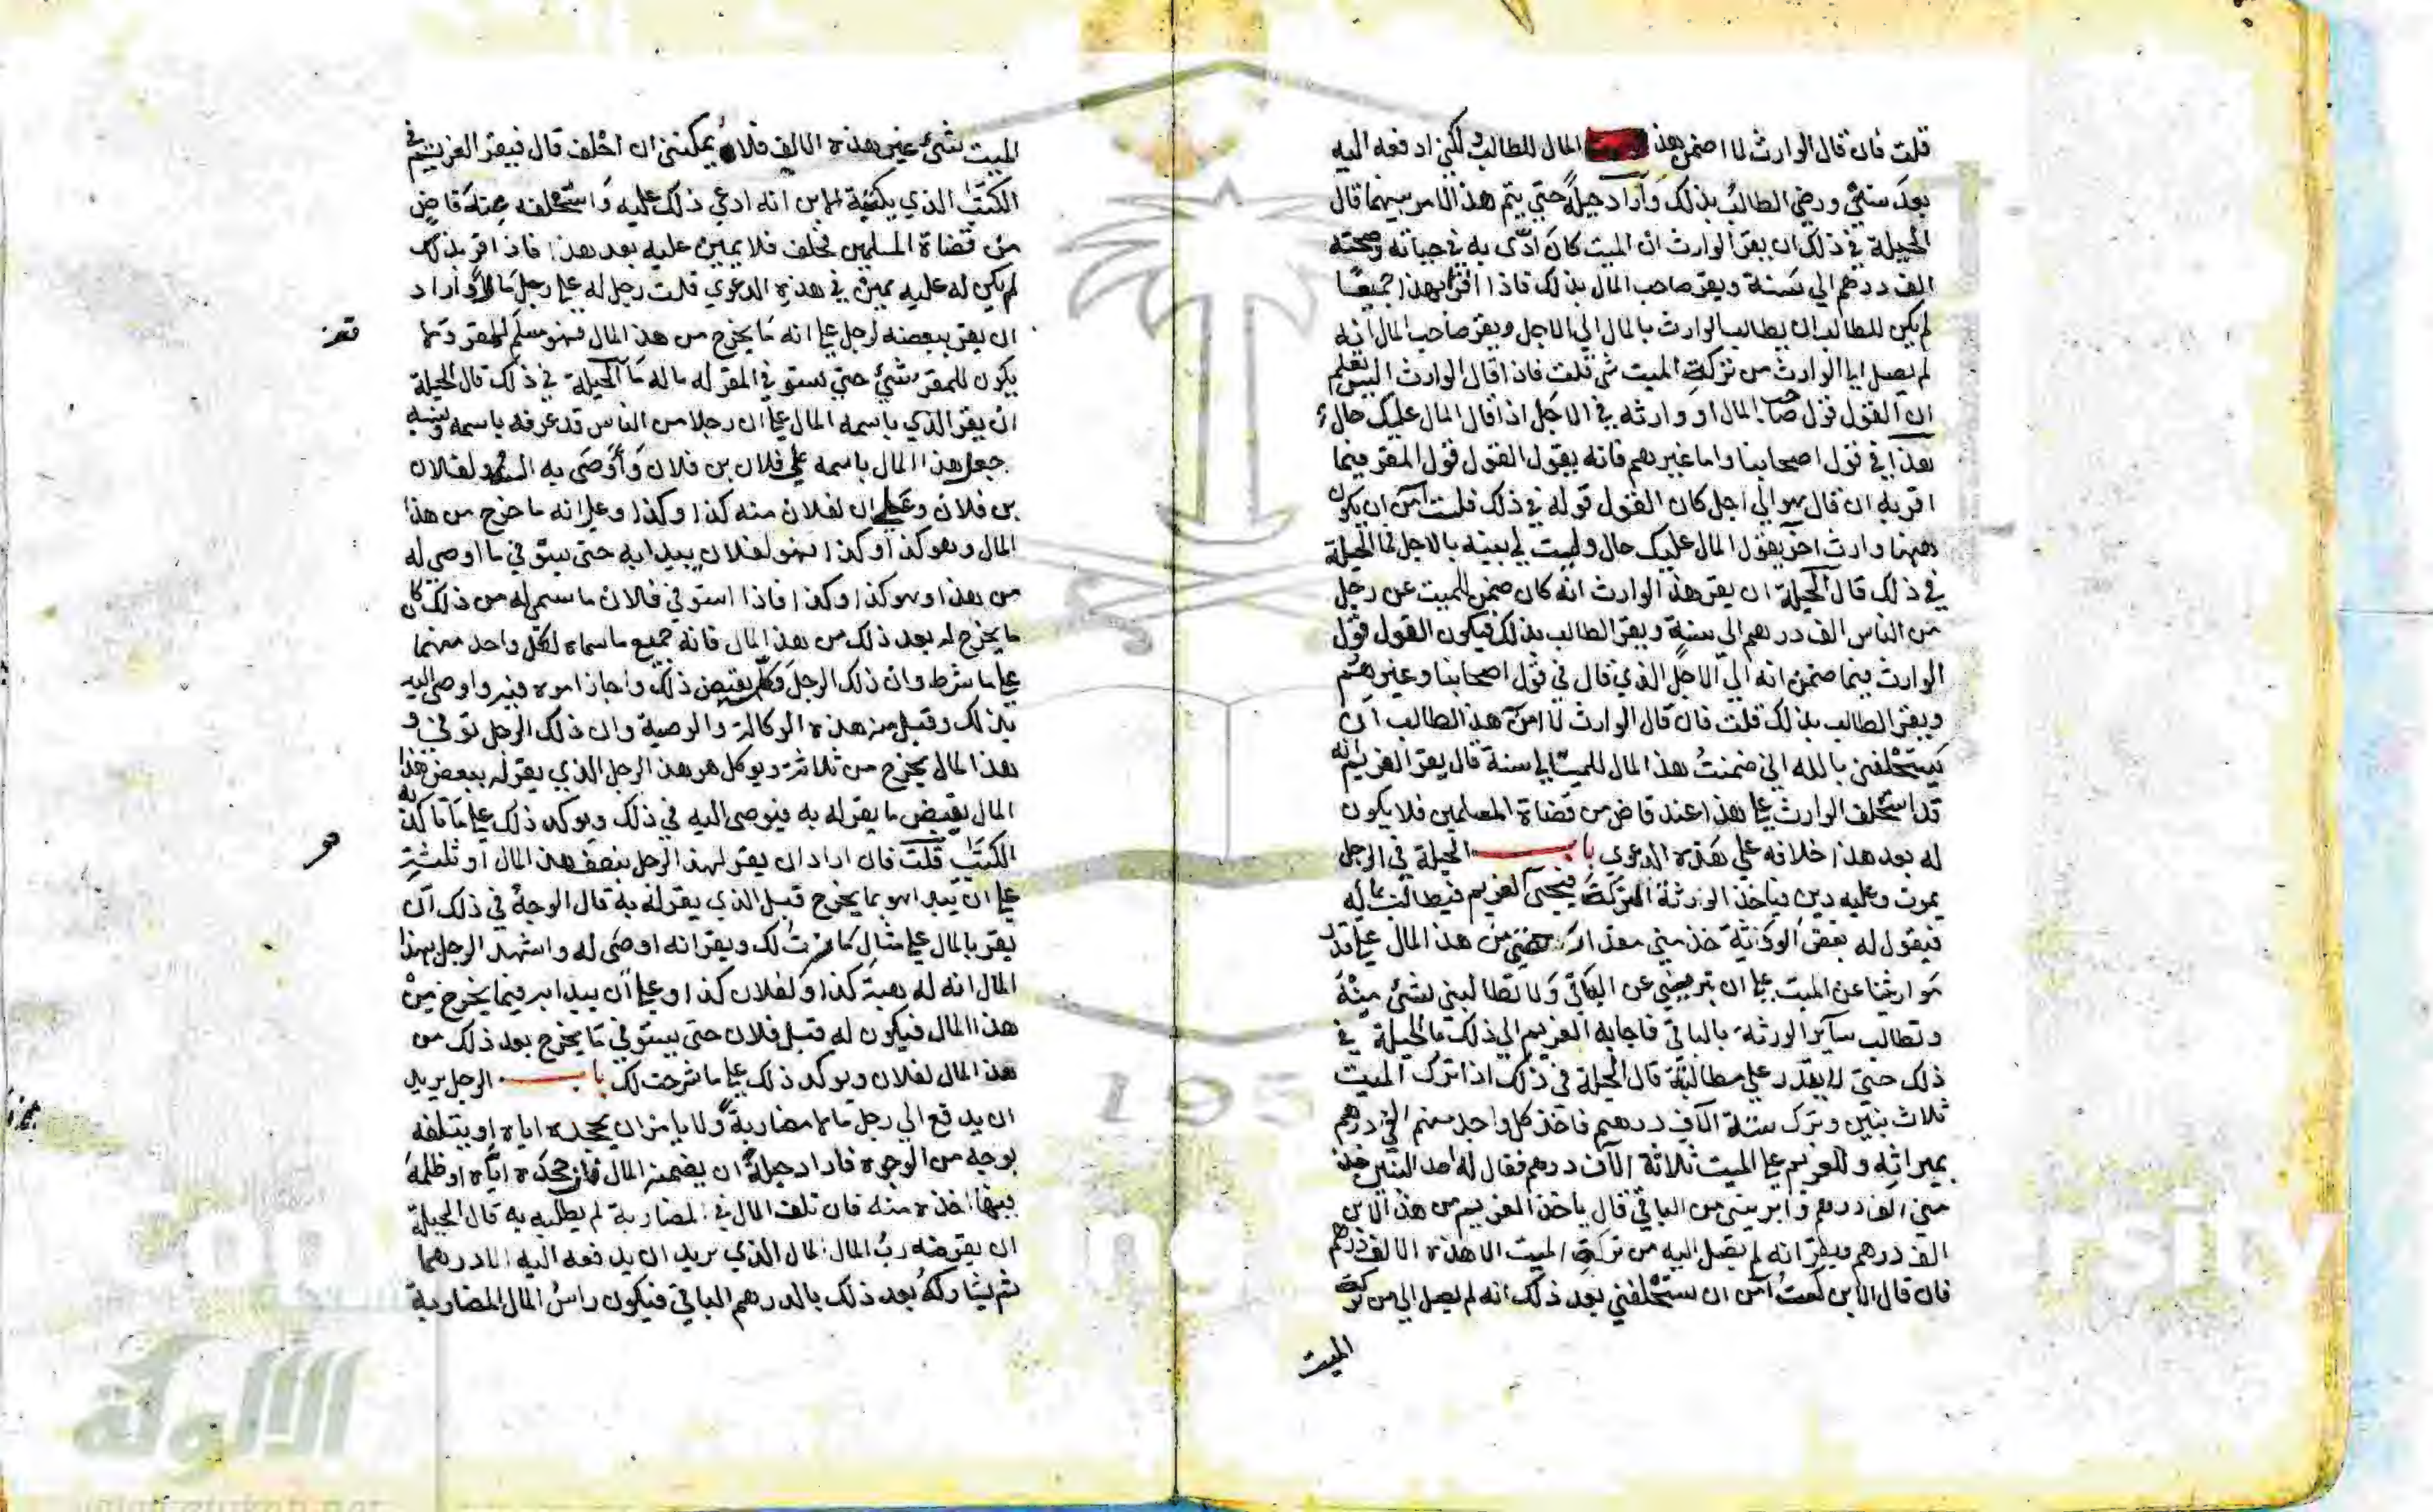 قلت فان قال الوارث لا اضمن هذا المال للطالب لكني ادفعه اليه
بعد سنتي ورضي الطالب بذلك وأراد حيلة حتى يتم هذا الامر بينهما قال
الحيلة في ذلك ان يقر الوارث ان الميت كان به في حياته وصحته
الف درهم الى سنة ويقر صاحب المال بذلك فاذا اقرا بهذا جميعًا
لم يكن للطالب ان يطالب الوارث بالمال الى الاجل ويقر صاحب المال انه
لم يصل الى الوارث من تركة الميت شي قلت فاذا قال الوارث اليس تعلم
ان القول قول صاحب المال او وارثه في الاجل اذا قال المال عليك حال
هذا في قول اصحابنا واما غيرهم فانه يقول القول قول المقر فيما
اقر به ان قال هو الى اجل كان القول قوله في ذلك قلت ان يكون
ههنا وارث اخر يقول المال عليك حال وليست لي بينه بالاجل فما الحيلة
في ذلك قال الحيلة ان يقر هذا الوارث انه كان ضمن للميت عن رجل
من الناس الف درهم الى سنة ويقر الطالب بذلك فيكون القول قول
الوارث فيما ضمن انه الى الاجل الذي قال في قول اصحابنا وغيرهم
ويقر الطالب بذلك قلت فان قال الوارث لا امن هذا الطالب ان
يستحلفني بالله اني ضمنت هذا المال للميت الى سنة قال يقر الغريم انه
قد استحلف الوارث على هذا عند قاض من قضاة المسلمين فلا يكون
له بعد هذا خلافه على هذه الدعوى باب الحيلة في الرجل
يموت وعليه دين فياخذ الورثة التركة فيجئ الغريم فيطالب بماله
فيقول له بعض الورثة خذ مني مقدار من هذا المال على قدر
مواريثنا عن الميت على ان تبريني عن الباقي ولا تطالبني بشئ منه
وتطالب سآئر الورثة بالباقي فاجابه الغريم الى ذلك ما الحيلة في
ذلك حتى لا يقدر على مطالبته قال الحيلة في ذلك اذا ترك الميت
ثلاث بنين وترك ستة الآف درهم فاخذ كل واحد منهم الفي درهم
بميراثه وللغريم على الميت ثلاثة الآف درهم فقال له احد البنين خذ
مني الف درهم وابريني من الباقي قال ياخذ الغريم من هذا الابن
الف درهم ويقر انه لم يصل اليه من تركة الميت الا هذه الالف درهم
فان قال الابن لست آمن ان يستحلفني بعد ذلك انه لم يصل الي من تركة
الميت
الميت شئ غير هذه الالف فلا يمكنني ان احلف قال فيقر الغريم في
الكتاب الذي يكتبه للابن انه ادعى ذلك عليه واستحلفه عند قاض
من قضاة المسلمين فحلف فلا يمين عليه بعد هذا فاذا اقر بذلك
لم يكن له عليه يمين في هذه الدعوى قلت رجل له على رجل مالا وأراد
ان يقر ببعضه لرجل على انه ما يخرج من هذا المال فهو مسلم للمقر وما
يكون للمقر شئ حتى يستوفي المقر له ماله ما الحيلة في ذلك قال الحيلة
ان يقر الذي باسمه المال على ان رجلا من الناس قد عرفه باسمه ونسبه
جعل هذا المال باسمه على فلان بن فلان وأوصى به لفلان
بن فلان وعلى ان لفلان منه كذا وكذا وعلى انه ما خرج من هذا
المال وهو كذا وكذا فهو لفلان يبدا به حتى يستوفي ما اوصى له
من هذا وهو كذا وكذا فاذا استوفي فلان ما سمى له من ذلك كان
ما يخرج له بعد ذلك من هذا المال فانه جميع ما سماه لكل واحد منهما
على ما شرط وان ذلك الرجل وكله بقبض ذلك واجاز امره فيه واوصى اليه
بذلك وقبل منه هذه الوكالة والوصية وان ذلك الرجل توفي و
هذا المال يخرج من ثلاثة ويوكل هو هذا الرجل الذي يقر له ببعض هذا
المال بقبض ما يقر له به فيوصى اليه في ذلك ويوكد ذلك على ما تاكد به
الكتاب قلت فان اراد ان يقر لهذا الرجل بنصف هذا المال او ثلثه
على ان يبدا هو بما يخرج قبل الذي يقر له به قال الوجه في ذلك ان
يقر بالمال على مثال ما لك ويقر انه اوصى له واشهد الرجل بهذا
المال انه له كذا ولفلان كذا وعلى ان يبدا به فيما يخرج من
هذا المال فيكون له قبل فلان حتى يستوفي ما يخرج بعد ذلك من
هذا المال لفلان ويوكد ذلك على ما شرحت لك باب الرجل يريد
ان يدفع الى رجل مالا مضاربة ولا يامن ان يجحده اياه او يتلفه
بوجه من الوجوه فاراد حيلة ان يضمنه المال فان جحده اياه او ظلمه
اخذه منه فان تلف المال في المضاربة لم يطلبه به قال الحيلة
ان يقرضه رب المال المال الذي يريد ان يدفعه اليه الا درهما
ثم يشاركه بعد ذلك بالدرهم الباقي فيكون راس المال المضاربة